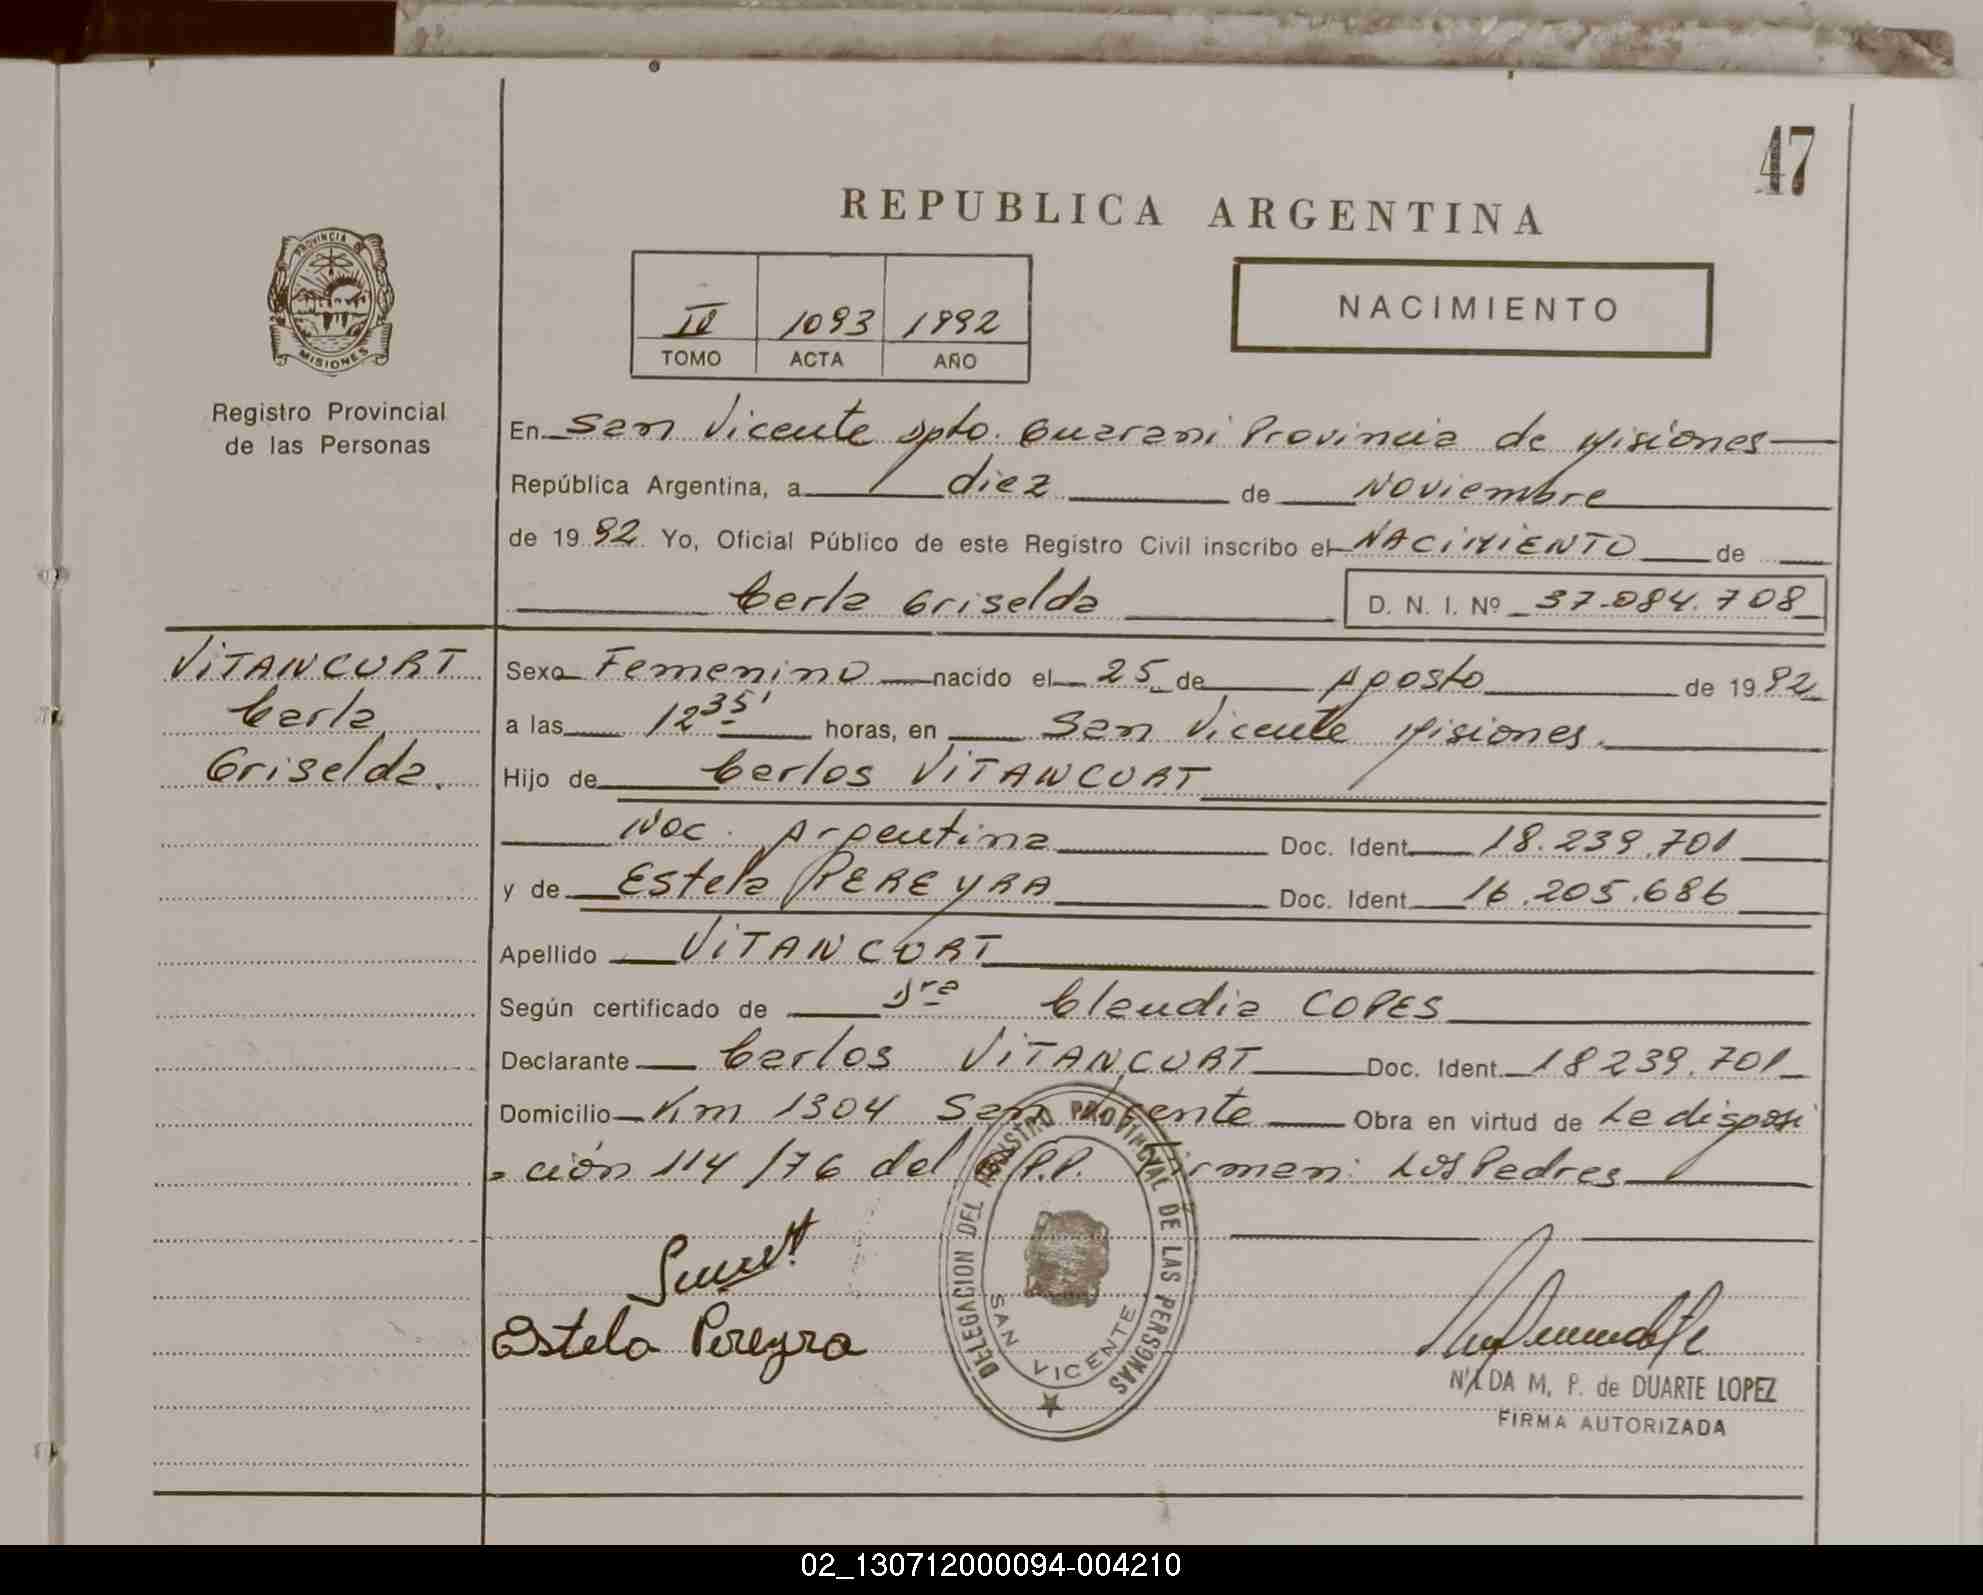 47
REPUBLICA ARGENTINA
PROVINCIA DE
MISIONES
IV 1093 1992
TOMO ACTA AÑO
NACIMIENTO
Registro Provincial
de las Personas
En San Vicente Dpto. Guarani Provincia de Misiones
República Argentina, a diez de Noviembre
de 1992 Yo, Oficial Público de este Registro Civil inscribo el NACIMIENTO de
Carla Griselda D. N. I. Nº 37.084.708
VITANCURT
Carla
Griselda.
Sexo Femenino nacido el 25 de Agosto de 1992
a las 12 35' horas, en San Vicente Misiones.
Hijo de Carlos VITANCURT
Nac. Argentina Doc. Ident. 18.239.701
y de Estela PEREYRA Doc. Ident. 16.205.686
Apellido VITANCURT
Según certificado de Dra Claudia COPES
Declarante Carlos VITANCURT Doc. Ident. 18239.701
Domicilio Km 1304 San Vicente Obra en virtud de La disposi
ción 114/76 del R.P.P. Firman: Los Padres
Estela Pereyra
DELEGACION DEL REGISTRO PROVINCIAL DE LAS PERSONAS
SAN VICENTE
NILDA M. P. de DUARTE LOPEZ
FIRMA AUTORIZADA
02_130712000094-004210